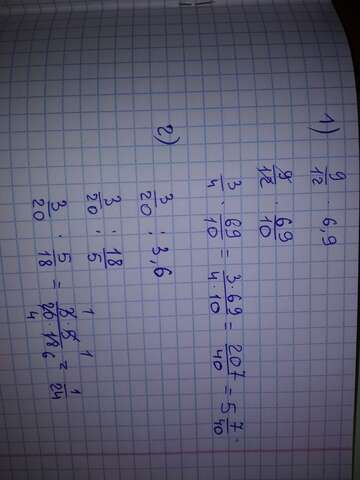 1) 9/12 · 6,9
9/12 · 69/10
3/4 · 69/10 = 3·69/4·10 = 207/40 = 5 7/40
2) 3/20 : 3,6
3/20 : 18/5
3/20 · 5/18 = 3·5/20·18 = 1/24